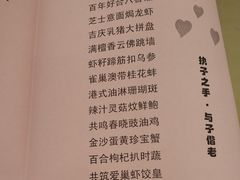 百年好合八
芝士意面焗龙虾
吉庆乳猪大拼盘
满檀香云佛跳墙
虾籽蹄筋扣乌参
雀巢澳带桂花蚌
港式油淋珊瑚斑
辣汁灵菇炆鲜鲍
共鸣春晓豉油鸡
金沙蛋黄珍宝蟹
百合枸杞扒时蔬
共筑爱巢虾饺皇
执子之手·与子偕老